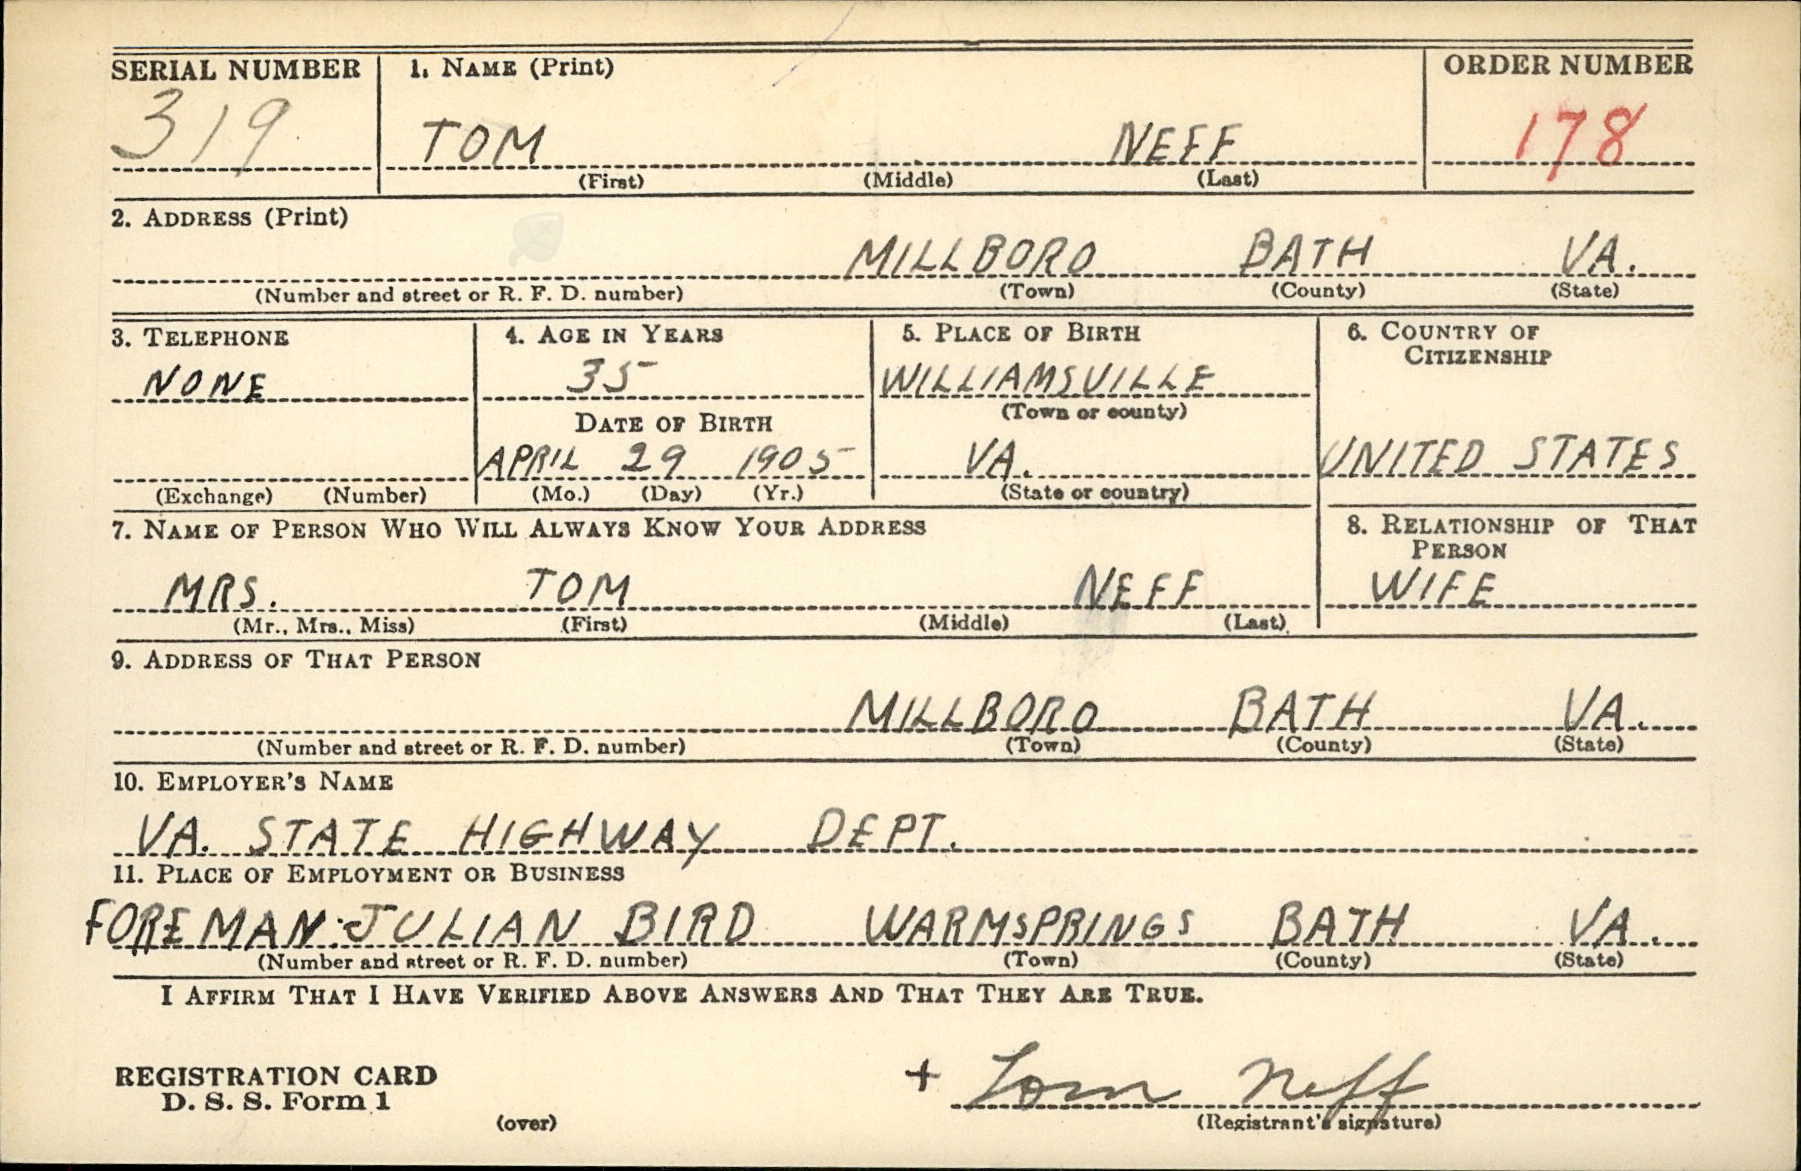 SERIAL NUMBER 1. NAME (Print) ORDER NUMBER
319 TOM NEFF 178
(First) (Middle) (Last)
2. ADDRESS (Print)
MILLBORO BATH VA.
(Number and street or R. F. D. number) (Town) (County) (State)
3. TELEPHONE 4. AGE IN YEARS 5. PLACE OF BIRTH 6. COUNTRY OF
CITIZENSHIP
NONE 35 WILLIAMSVILLE
(Town or county)
DATE OF BIRTH
APRIL 29 1905 VA. UNITED STATES
(Exchange) (Number) (Mo.) (Day) (Yr.) (State or country)
7. NAME OF PERSON WHO WILL ALWAYS KNOW YOUR ADDRESS 8. RELATIONSHIP OF THAT
PERSON
MRS. TOM NEFF WIFE
(Mr., Mrs., Miss) (First) (Middle) (Last)
9. ADDRESS OF THAT PERSON
MILLBORO BATH VA.
(Number and street or R. F. D. number) (Town) (County) (State)
10. EMPLOYER'S NAME
VA. STATE HIGHWAY DEPT.
11. PLACE OF EMPLOYMENT OR BUSINESS
FOREMAN: JULIAN BIRD WARMSPRINGS BATH VA.
(Number and street or R. F. D. number) (Town) (County) (State)
I AFFIRM THAT I HAVE VERIFIED ABOVE ANSWERS AND THAT THEY ARE TRUE.
REGISTRATION CARD + Tom Neff
D. S. S. Form 1
(over) (Registrant's signature)